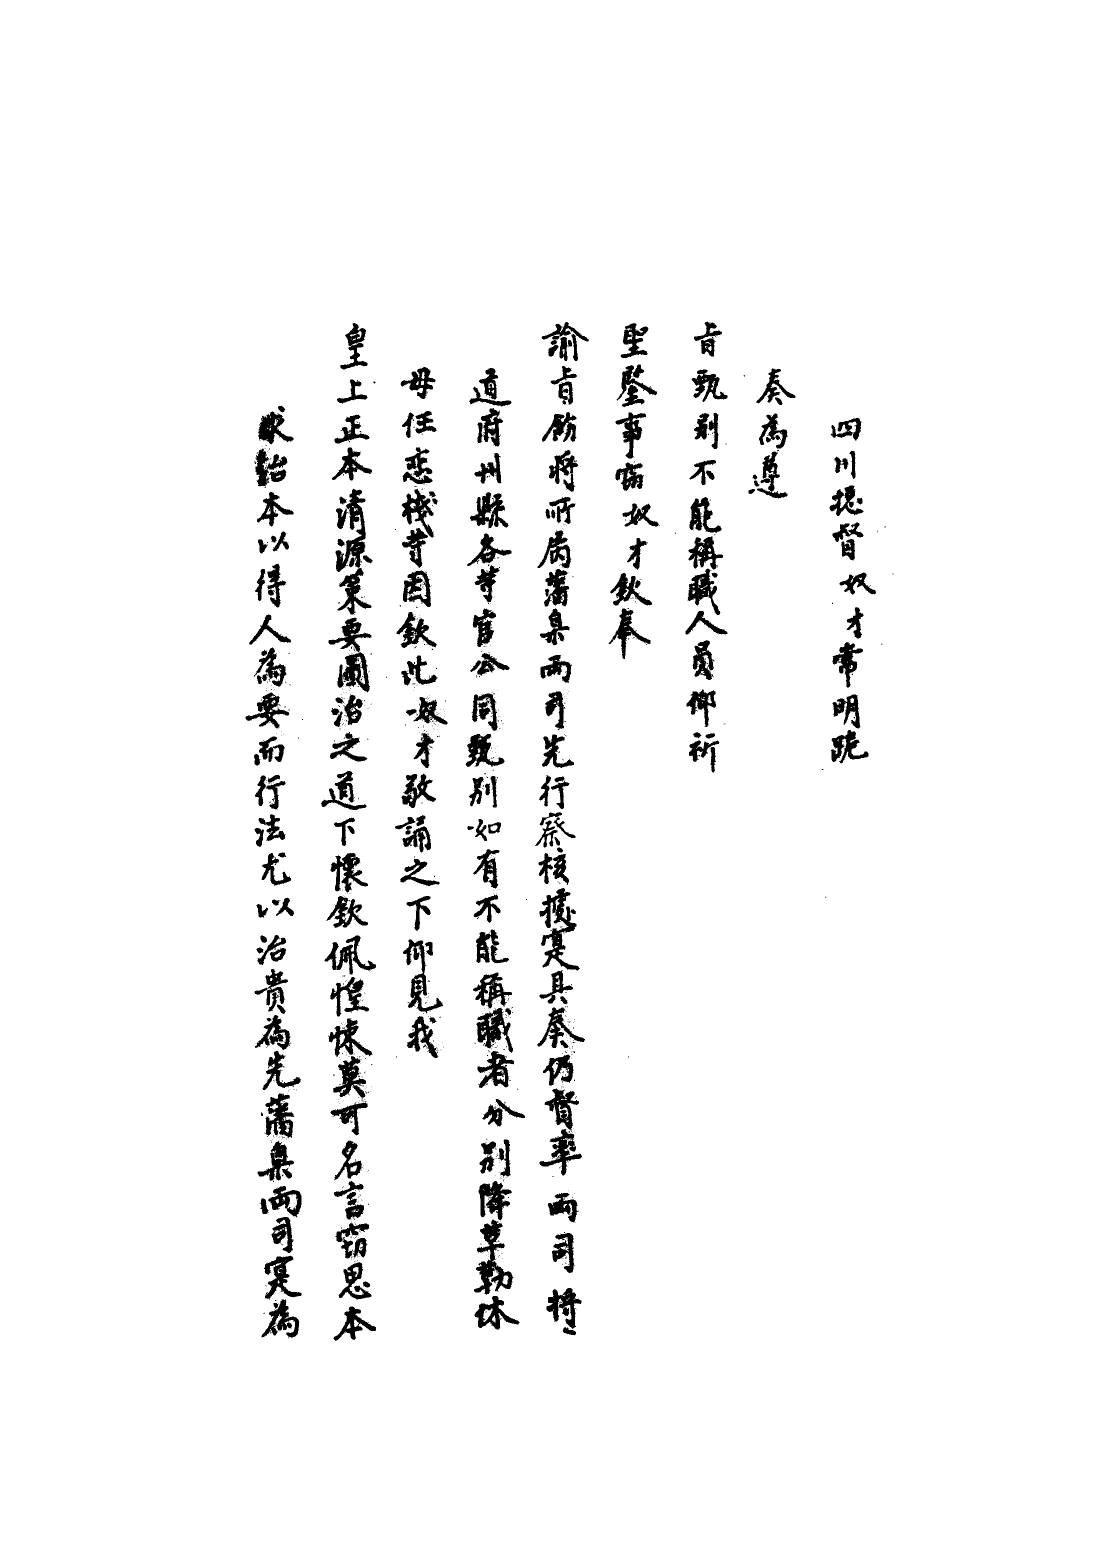 四川總督奴才常明跪
奏為遵
旨甄别不能稱職人員仰祈
聖鑒事竊奴才欽奉
諭旨飭將所屬藩臬兩司先行察核據實具奏仍督率兩司將
道府州縣各等官公同甄别如有不能稱職者分别降革勒休
毋任戀棧等因欽此奴才敬誦之下仰見我
皇上正本清源策要圖治之道下懷欽佩惶悚莫可名言竊思本
求治本以得人為要而行法尤以治貴為先藩臬兩司寔為